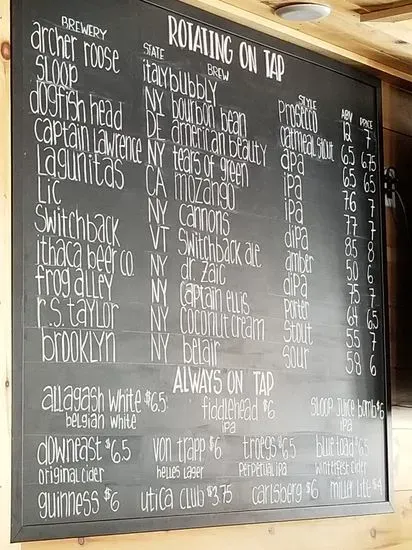 ROTATING ON TAP
BREWERY STATE BREW STYLE ABV PRICE
archer roose italy bubbly prosecco 12 7
sloop NY bourbon bean oatmeal stout 6.5 6.75
dogfish head DE american beauty apa 6.5 6.5
captain lawrence NY tears of green ipa 7.6 7
lagunitas CA mozango ipa 7.7 7
lic NY cannons dipa 8.5 8
switchback VT switchback ale amber 5.0 6
ithaca beer co. NY dr. zaic dipa 7.5 7
frog alley NY captain ellis porter 6.4 6.5
r.s. taylor NY coconut cream stout 5.5 7
brooklyn NY belair sour 5.8 6
ALWAYS ON TAP
allagash white $6.5 fiddlehead $6 sloop juice bomb $6
belgian white ipa ipa
downeast $6.5 von trapp $6 troegs $6.5 blue toad $6.5
original cider helles lager perpetual ipa winterfest cider
guinness $6 utica club $3.75 carlsberg $6 miller lite $4